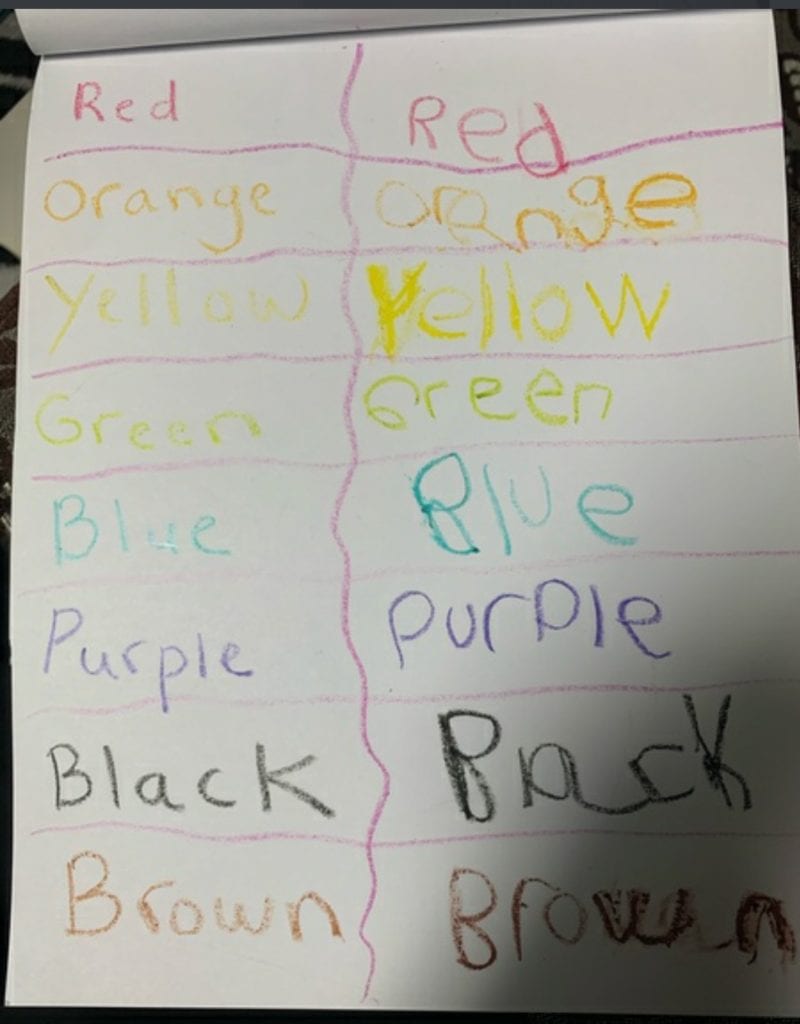 Red Red
Orange Orange
Yellow Yellow
Green Green
Blue Blue
Purple Purple
Black Black
Brown Brown